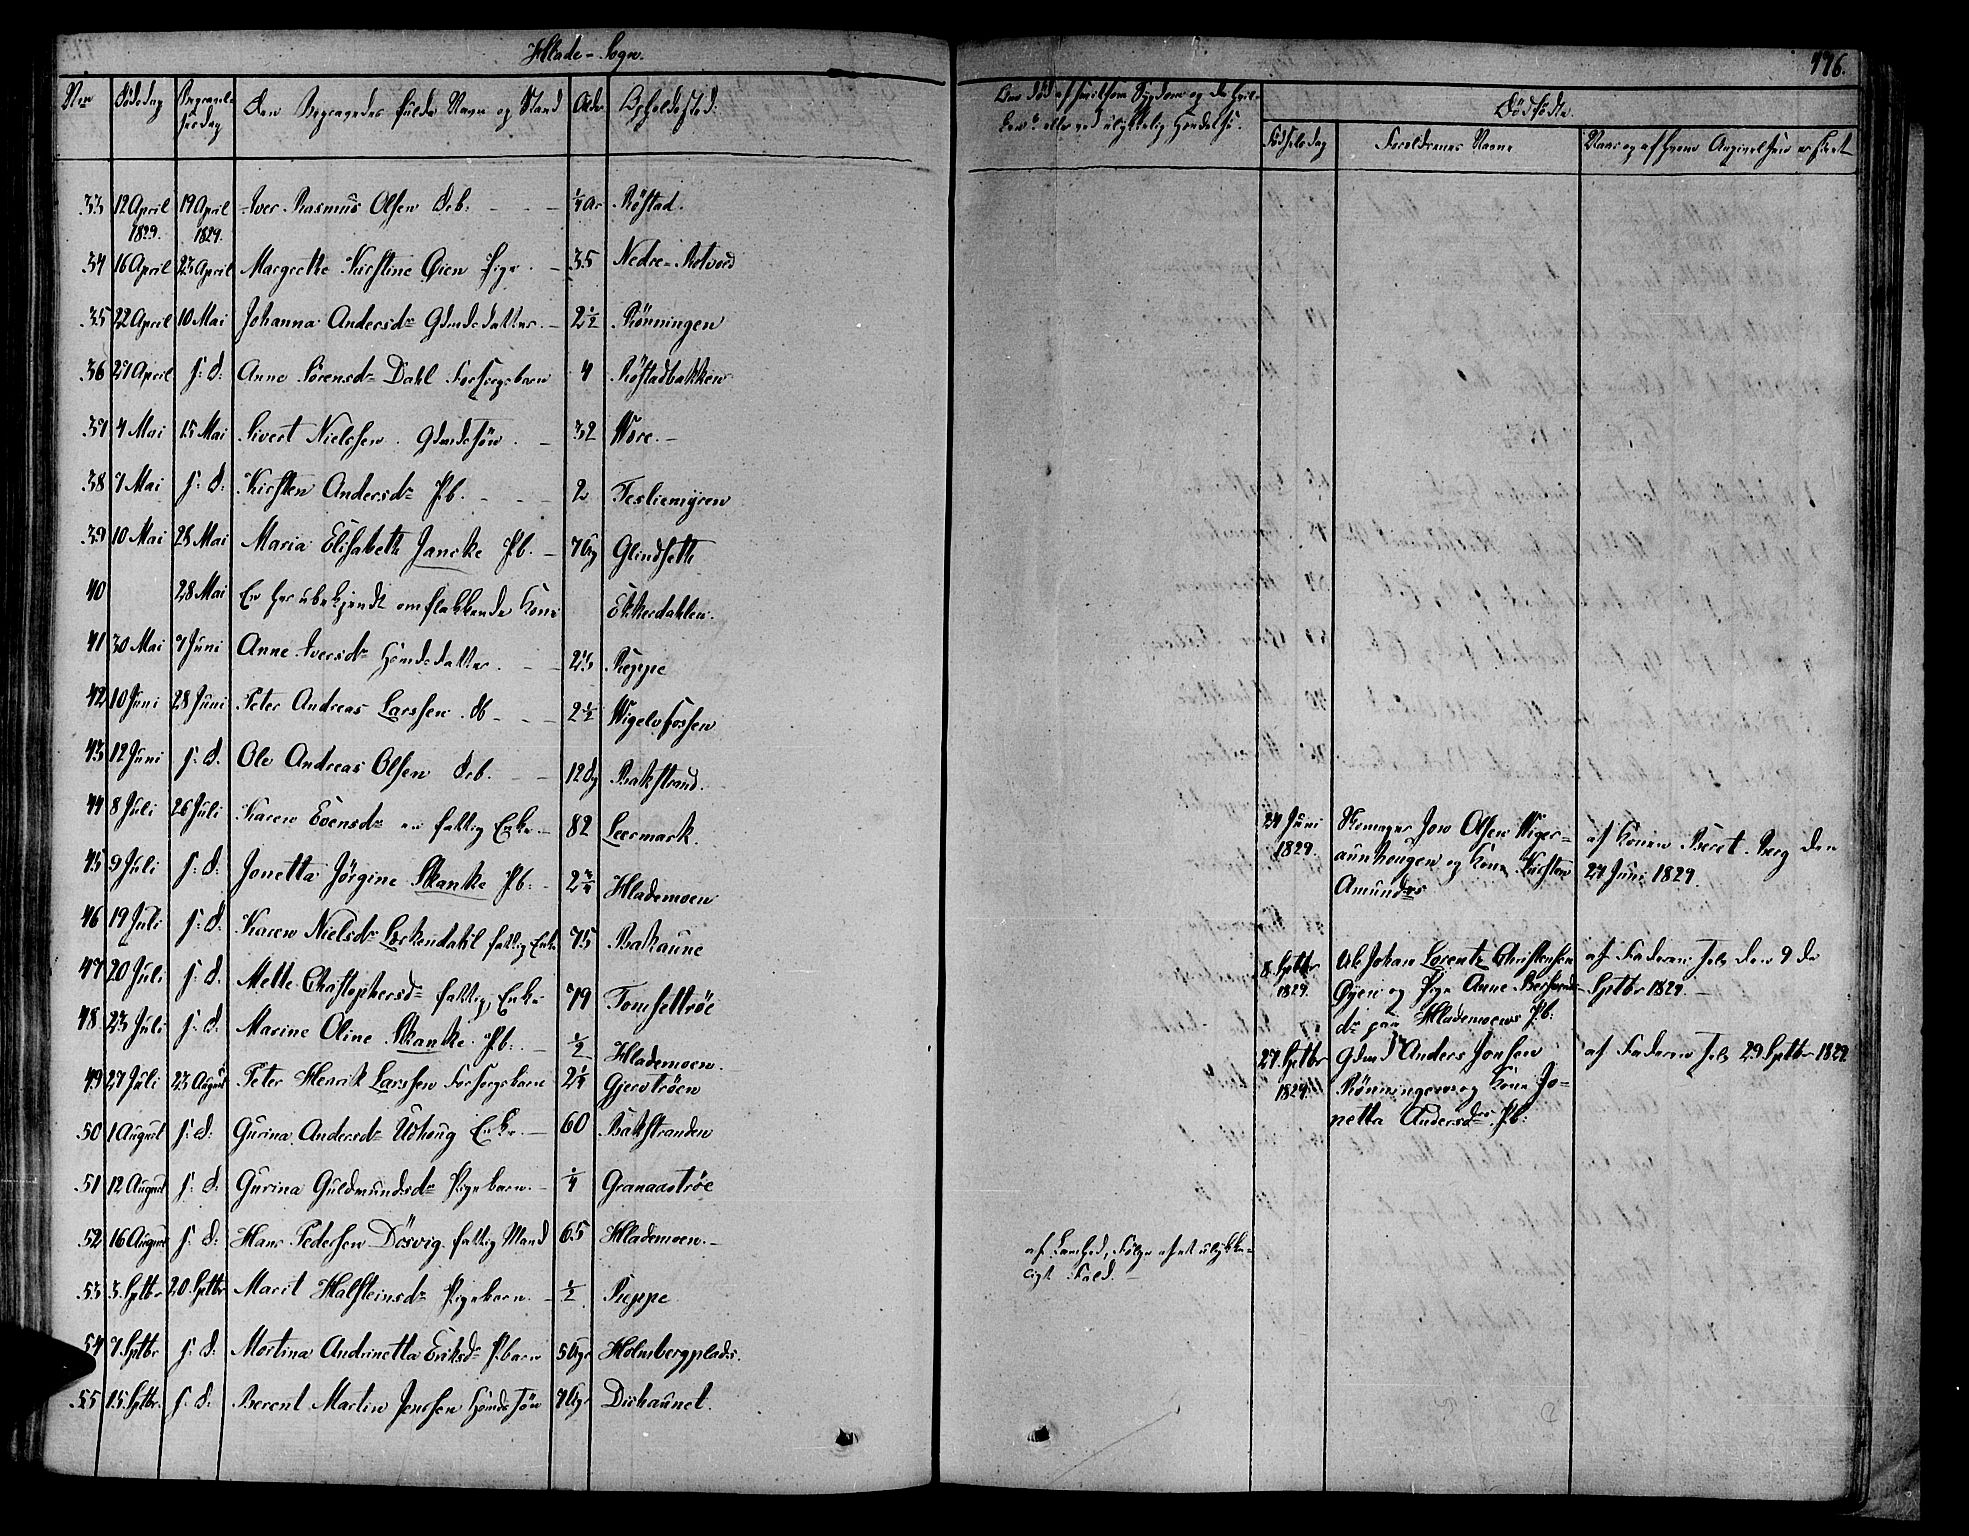 Hlade-Sogn.
Nro Dødsdag Begravelsesdag Den Begravedes fulde Navn og Stand Alder Opholdssted.
33 12 April 1829. 19 April 1829. Iver Rasmus Olsen Drb. ¼ Ar Röstad.
34 16 April 23 April Margrethe Kirstine Øien Pige 35 Nedre-Rotvold
35 22 April 10 Mai Johanna Andersdr Gdmds datter. 2½ Rönningen
36 27 April s: d: Anne Sörensdr Dahl Forsorgsbarn 4 Röstadbakken
37 4 Mai 15 Mai Sivert Nielssen Gdmds søn. 32 Wore.
38 7 Mai s: d: Kirsten Andersdr Pb. 2 Fesliemyren
39 10 Mai 28 Mai Maria Elisabeth Jancke Pb. 7 Ug Glindseth
40 28 Mai En her ubekjendt omflakkende Kone Ekkerdahlen.
41 30 Mai 7 Juni Anne Iversdr Hsmds datter Reppe
42 10 Juni 28 Juni Peter Andreas Larssen 2½ Wigelvfossen
43 12 Juni s: d: Ole Andreas Olsen Drb. 12 Dg Bakstrand.
44 8 Juli 26 Juli Karen Evensdr en fattig Enke 82 Leermark.
45 9 Juli s: d: Jonetta Jörgine Skanke Pb. 2¾ Hlademoen
46 19 Juli s: d: Karen Nielsdr Lerkendahl fattig Enke 75 Bakaune
47 20 Juli s: d: Mette Chastophersdr fattig Enke 79 Tomsettröe
48. 23 Juli s: d: Marine Oline Skanke Pb. ½ Hlademoen.
49 27 Juli 23 August Peter Henrik Larssen Forsorgsbarn 2¼ Gjervtröen
50 1 August s: d: Gurina Andersdr Udhoug Enke 60 Bakstranden
51 12 August s: d: Gurina Guldmundsdr Pigebarn ¼ Granaaströe
52 16 August s: d: Hans Pedersen Dösvig fattig Mand 65 Hlademoen.
53 3 Sptbr 20 Sptbr Marit Halfsteinsdr Pigebarn ½ Reppe
54 7 Sptbr s: d: Martina Andrinetta Eriksdr Pbarn 5 Ugr Holmbergplads.
55 15 Sptbr. s: d: Berent Martin Jenssen Hsmds søn 7 Ugr Dishaunet.
176.
Om død af smitsom Sygdom og da hvilken? eller ved ulykkelig Hændelse.
Dødfødte.
Fødselsdag Forældrenes Navne Naar og af hvem Angivelsen er skeet
24 Juni 1829. Jon Olsen Wiger-
aunhougen og Kone Kirsten
Amundsdr
af Konen Beret Berg den
27 Juni 1829.
8 Sptbr 1829. Johan Lorentz Christensen
Øyen og Pige Anne
dr paa Hlademoens Pb:
af Faderen selv den 9 de
Sptbr 1829.
27 Sptbr 1829. Gdmd Anders Jonsen
Rönningen og Kone Jo-
netta Andersdr Pb:
af Faderen selv 29 Sptbr 1829
af Følge af et ulykke-
ligt Fald.